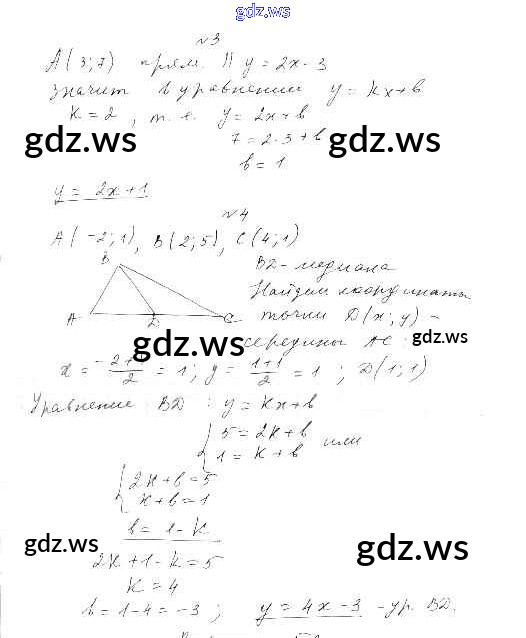 gdz.ws
№3
A(3;7) прям. || y = 2x-3
значит в уравнении y = kx+b
k = 2, т. е. y = 2x+b
gdz.ws gdz.ws
7 = 2·3+b
b = 1
y = 2x+1
№4
A(-2;1), B(2;5), C(4;1)
B
BD - медиана
Найдем координаты
A D C точки D(x;y) -
gdz.ws середины AC gdz.ws
x = -2+4/2 = 1; y = 1+1/2 = 1; D(1;1)
Уравнение BD: y = kx+b
{5 = 2k+b или
1 = k+b
{2k+b=5
k+b=1
b = 1-k
gdz.ws gdz.ws
2k+1-k=5
k=4
b=1-4=-3; y=4x-3 -ур. BD.